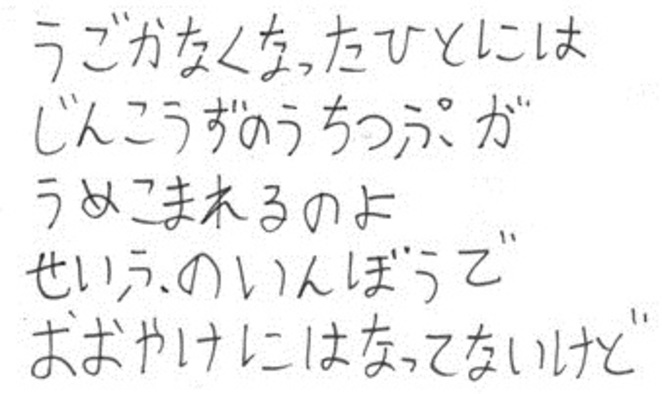 うごかなくなったひとには
じんこうずのうちっぷが
うめこまれるのよ
せいふのいんぼうで
おおやけにはなってないけど